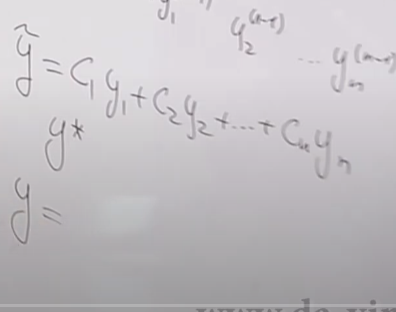 y₁ y₂⁽ⁿ⁻¹⁾ ... yₙ⁽ⁿ⁻¹⁾
ỹ = C₁y₁ + C₂y₂ + ... + Cₙyₙ
y*
y =